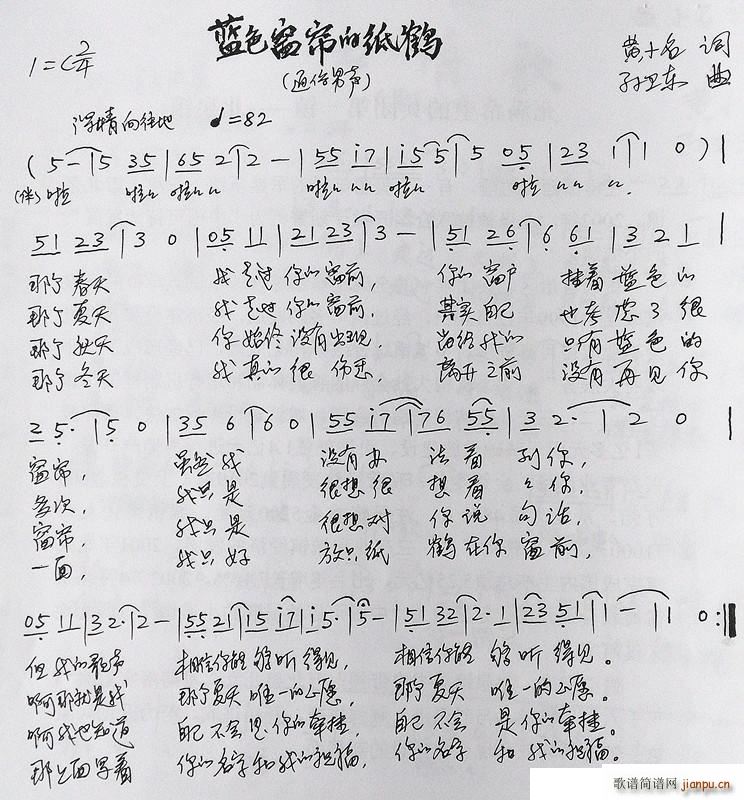 蓝色窗帘的纸鹤
(通俗男声)
1=C 2/4
黄小名 词
孙卫东 曲
深情向往地 ♩=82
(5-|5 35|65 2|2 -|55 i7|i5 5|5 05|23 1|1 0)|
(伴)啦 啦 啦 啦 啦 啦
51 23|3 0|05 11|21 23|3 -|51 26|6 61|3 2 1|
那个春天 我走过 你的窗前, 你的 窗户 挂着 蓝色的
那个夏天 我走过 你的窗前, 其实 自己 也考虑了很
那个秋天 你始终 没有出现, 留给我的 只有 蓝色的
那个冬天 我真的 很 伤悲 离开之前 没有再见你
2 5·|5 0|35 6|6 0|55 i7|76 55|3 2·|2 0|
窗帘, 虽然我 没有办 法看 到你,
多次, 我只是 很想很 想看 看你,
窗帘, 我只是 很想对 你说 句话,
一面, 我只好 放只纸 鹤在你 窗前,
05 11|32·|2-|55 21|15 i7|i5·|5-|51 32|2·1|23 51|1-|1 0:‖
但我的歌声 相信你能 够听 得见, 相信你能 够听 得见。
啊那就是我 那个夏天 唯一的心愿, 那个夏天 唯一的心愿。
啊我也知道 自己不会 是你的牵挂, 自己不会 是你的牵挂。
那上面写着 你的名字和我的祝福, 你的名字 和我的祝福。
歌谱简谱网
jianpu.cn